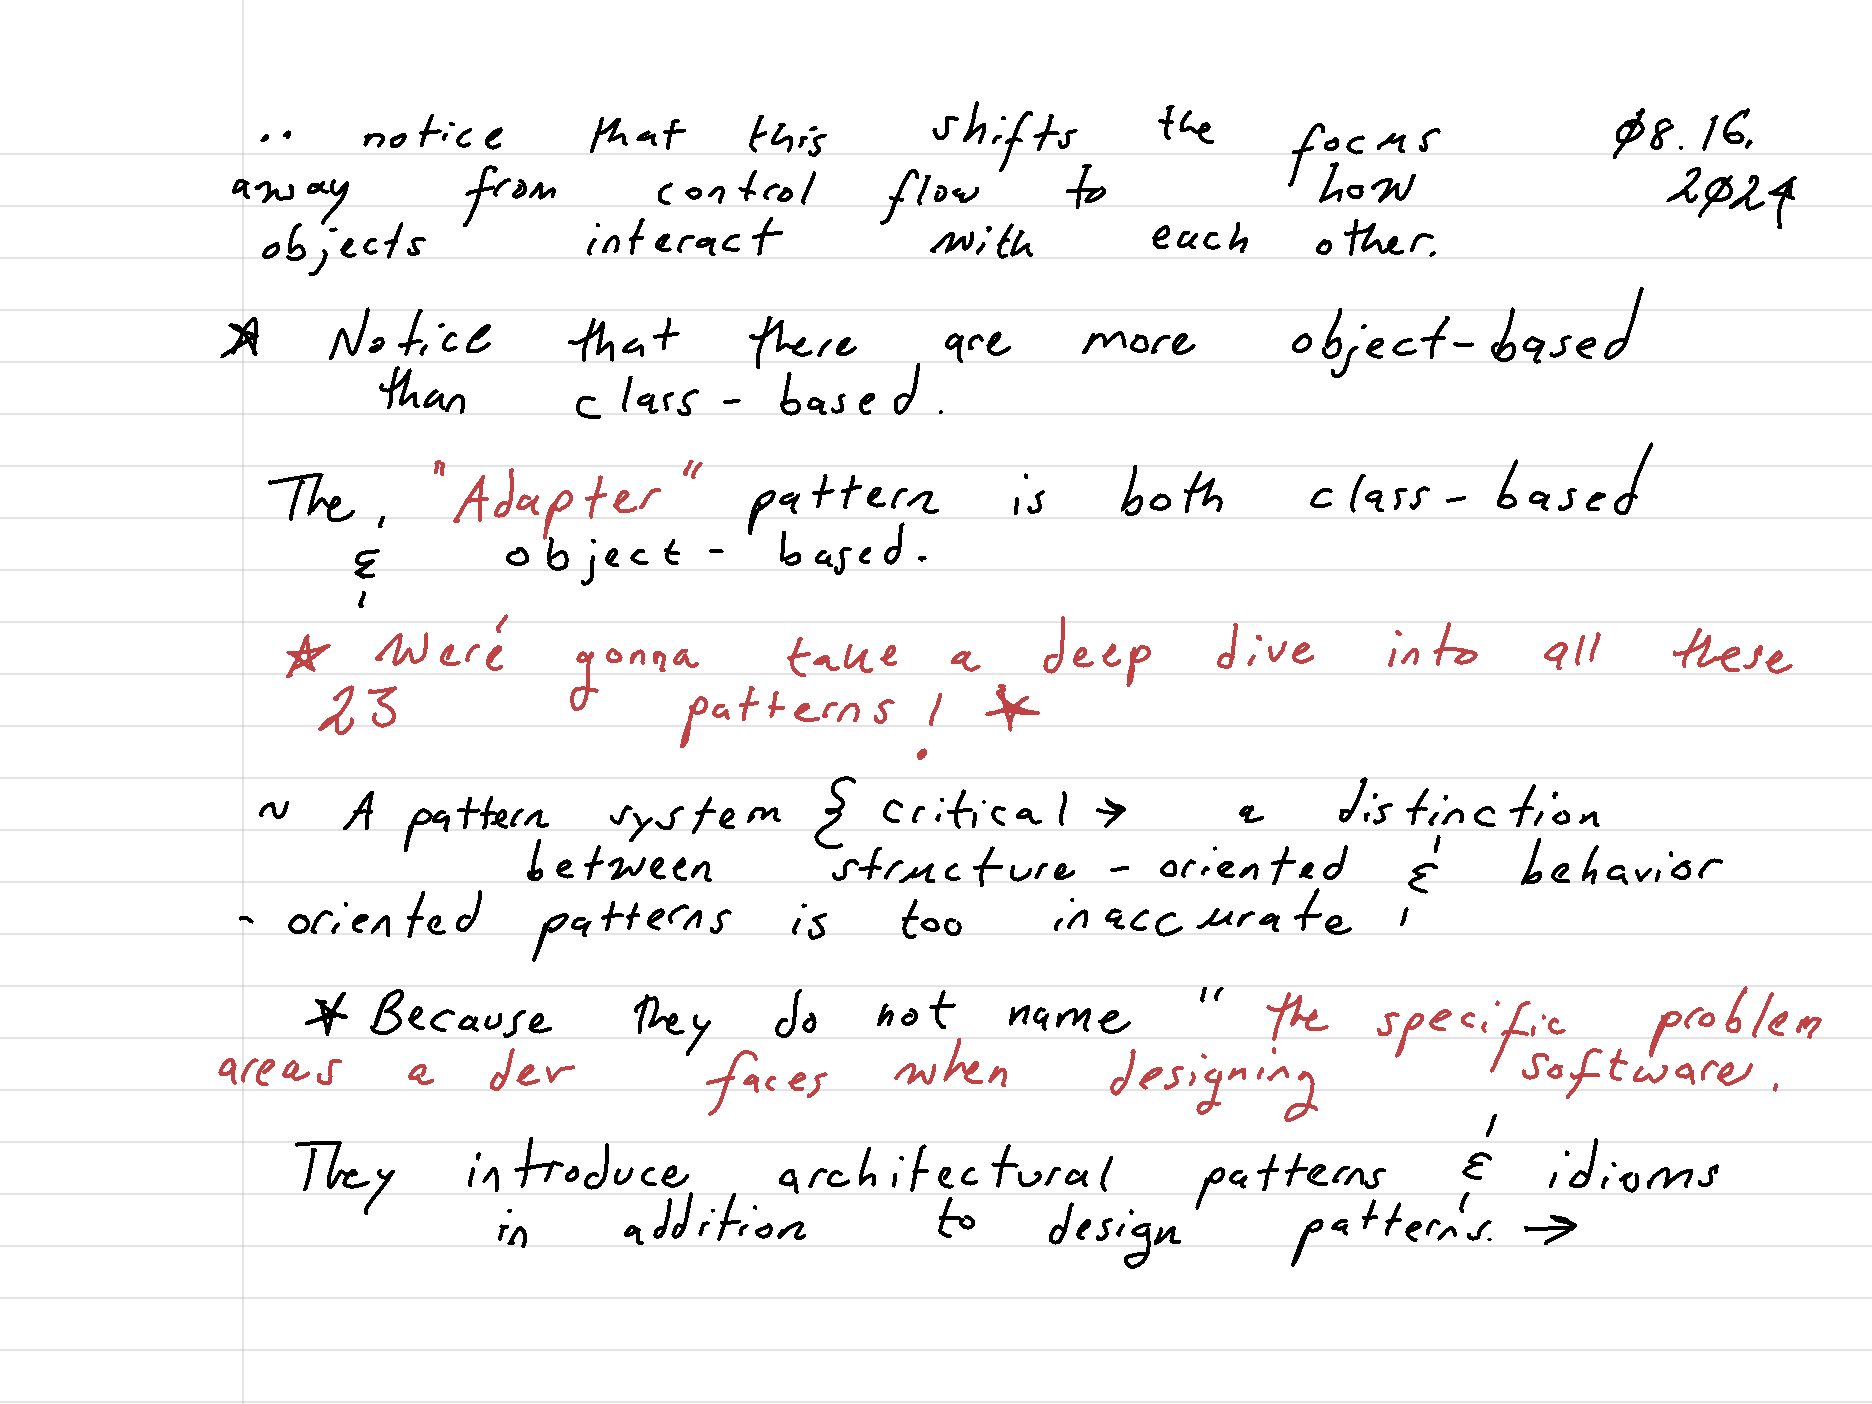 ·· notice that this shifts the focus Ø8.16.
away from control flow to how 2Ø24
objects interact with each other.
☆ Notice that there are more object-based
than class-based.
The "Adapter" pattern is both class-based
& object-based.
☆ Were' gonna take a deep dive into all these
23 patterns! ☆
~ A pattern system { critical → a distinction
between structure-oriented & behavior
-oriented patterns is too inaccurate
☆ Because they do not name "the specific problem
areas a dev faces when designing software.
They introduce architectural patterns & idioms
in addition to design patterns. →